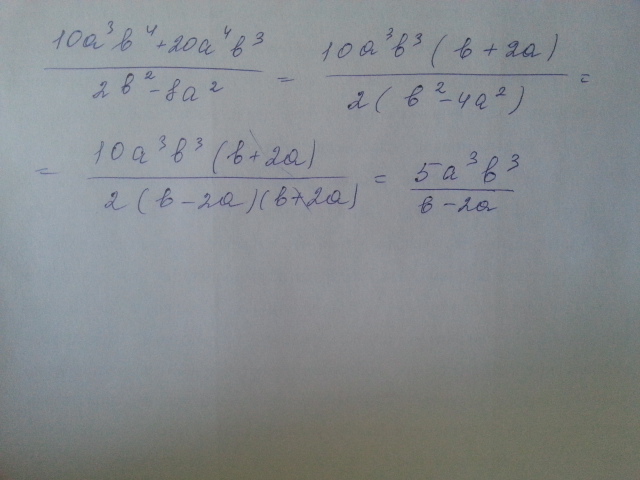 \frac{10a^3b^4+20a^4b^3}{2b^2-8a^2} = \frac{10a^3b^3(b+2a)}{2(b^2-4a^2)} =
= \frac{10a^3b^3(b+2a)}{2(b-2a)(b+2a)} = \frac{5a^3b^3}{b-2a}